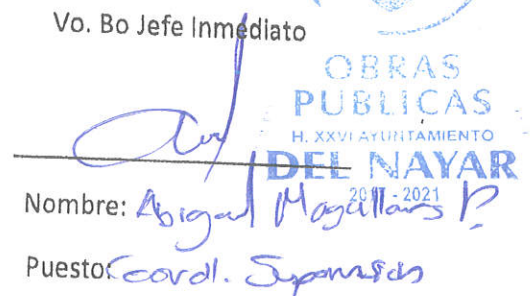 Vo. Bo Jefe Inmediato
OBRAS
PUBLICAS
H. XXVI AYUNTAMIENTO
DEL NAYAR
2017 - 2021
Nombre: Abigail Magallanes P.
Puesto: Coord. Supervisión